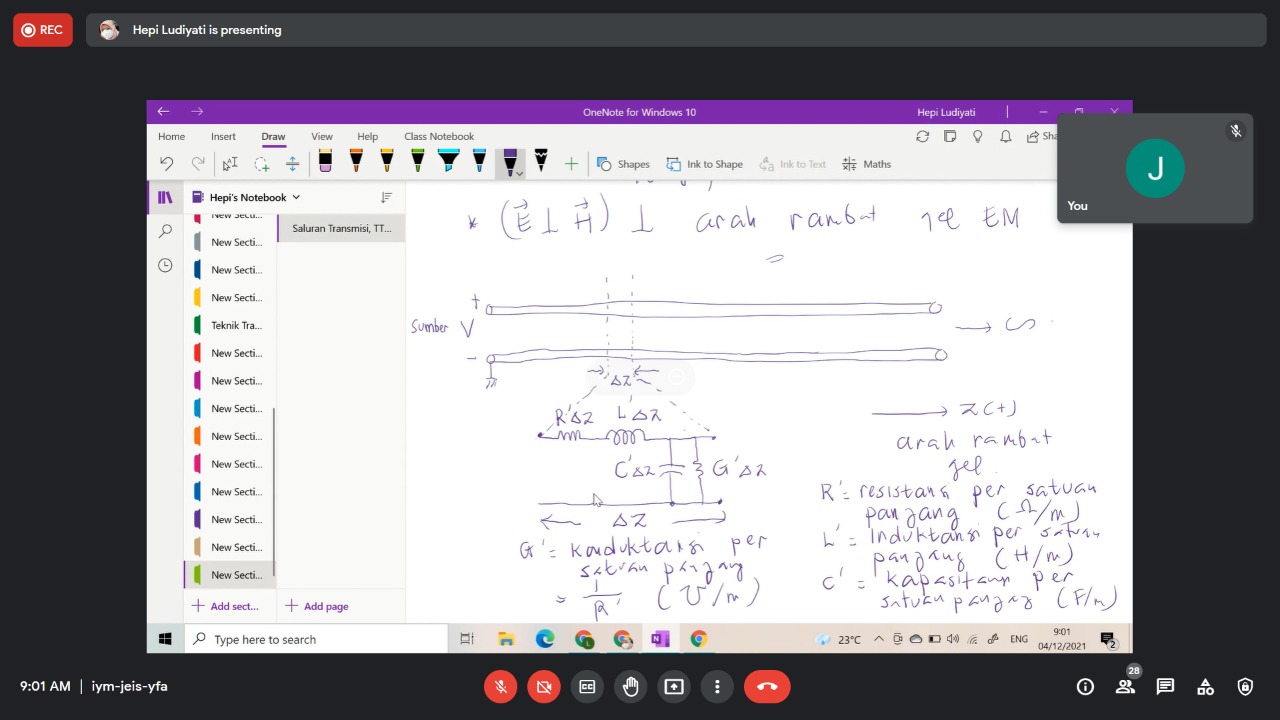 REC
Hepi Ludiyati is presenting
OneNote for Windows 10
Hepi Ludiyati
Home Insert Draw View Help Class Notebook
Sha
Shapes Ink to Shape Ink to Text Maths
You
J
Hepi's Notebook
New Secti...
New Secti...
New Secti...
New Secti...
Teknik Tra...
New Secti...
New Secti...
New Secti...
New Secti...
New Secti...
New Secti...
New Secti...
New Secti...
New Secti...
Add sect...
Saluran Transmisi, TT...
Add page
* (E⃗ ⊥ H⃗) ⊥ arah rambat gel EM
=
+
Sumber V
-
→ ∞
ΔZ
R'ΔZ L ΔZ
C'ΔZ G'ΔZ
ΔZ
G' = konduktansi per
satuan panjang
= 1/R' (℧/m)
→ Z(+)
arah rambat
gel
R' = resistansi per satuan
panjang (Ω/m)
L' = Induktansi per satuan
panjang (H/m)
C' = kapasitansi per
satuan panjang (F/m)
Type here to search
23°C
ENG
9:01
04/12/2021
2
9:01 AM | iym-jeis-yfa
28